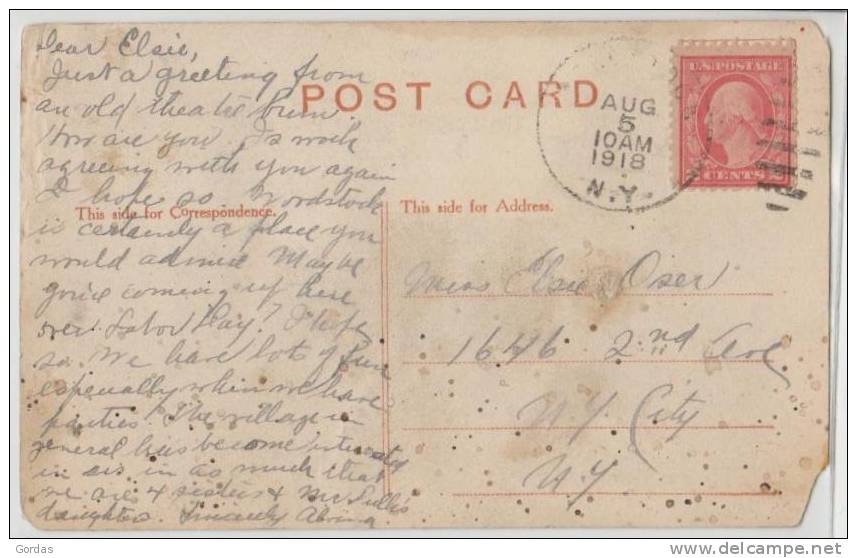 Dear Elsie,
Just a greeting from
an old theatre bum.
How are you. Is work
agreeing with you again
I hope so. Woodstock
is certainly a place you
would admire Maybe
you're coming up here
over Labor Day? I hope
so. We have lots of fun
especially when we have
parties. The village in
general has become interested
in us in as much that
we are 4 sisters &
daughters. Sincerely
POST CARD
This side for Correspondence.
This side for Address.
AUG
5
10AM
1918
N.Y.
U.S. POSTAGE
CENTS
Miss Elsie Oser
1646 2nd Ave
N.Y. City
N.Y.
Gordas
delcampe.net